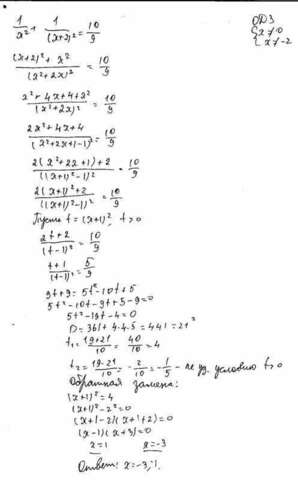 1/x² + 1/(x+2)² = 10/9
ОДЗ
{x≠0
{x≠-2
((x+2)² + x²)/(x²+2x)² = 10/9
(x²+4x+4+x²)/(x²+2x)² = 10/9
(2x²+4x+4)/(x²+2x+1-1)² = 10/9
(2(x²+2x+1)+2)/((x+1)²-1)² = 10/9
(2(x+1)²+2)/((x+1)²-1)² = 10/9
Пусть t=(x+1)², t>0
(2t+2)/(t-1)² = 10/9
(t+1)/(t-1)² = 5/9
9t+9=5t²-10t+5
5t²-10t-9t+5-9=0
5t²-19t-4=0
D=361+4·4·5=441=21²
t₁=(19+21)/10=40/10=4
t₂=(19-21)/10=-2/10=-1/5 - не уд. условию t>0
Обратная замена:
(x+1)²=4
(x+1)²-2²=0
(x+1-2)(x+1+2)=0
(x-1)(x+3)=0
x=1 x=-3
Ответ: x=-3;1.